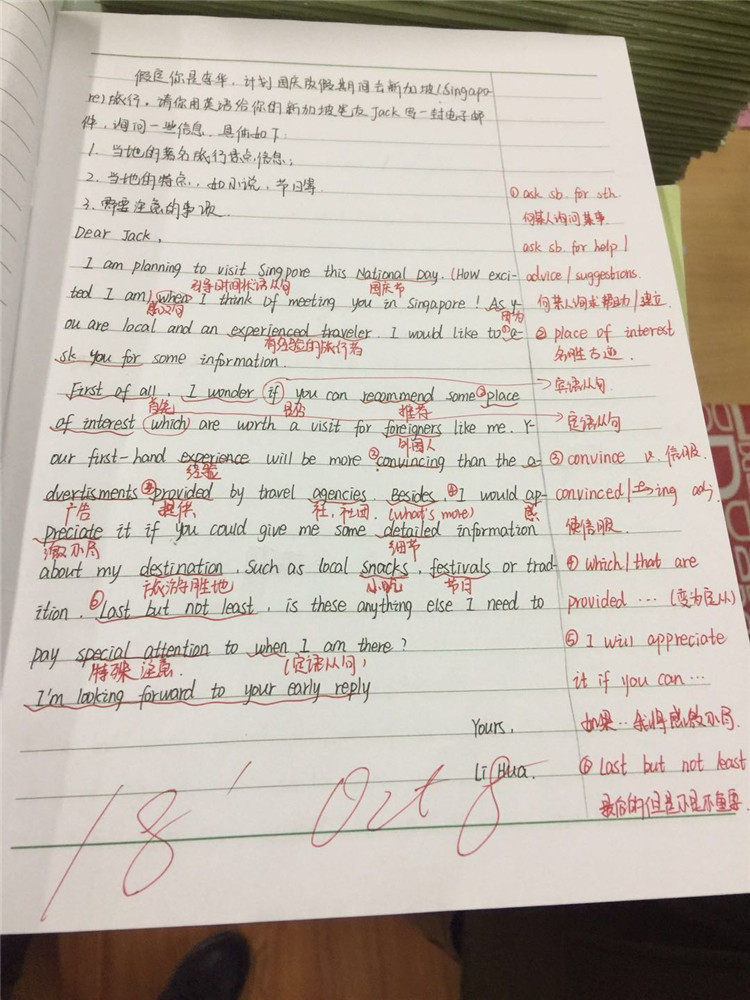 假定你是李华,计划国庆放假期间去新加坡(Singapo-
re)旅行。请你用英语给你的新加坡笔友Jack写一封电子邮
件,询问一些信息,具体如下:
1. 当地的著名旅行景点信息;
2. 当地的特点,如小说,节日等
3. 需要注意的事项.
Dear Jack,
I am planning to visit Singpore this National Day. (How exci-
有多时间状语从句
国庆节
ted I am) when I think of meeting you in Singapore! As y-
感叹句
因为
ou are local and an experienced traveler. I would like to ①a-
有经验的旅行者
sk you for some information.
First of all, I wonder if you can recommend some ②place
首先
是否
推荐
of interest (which) are worth a visit for foreigners like me. Y-
外国人
our first-hand experience will be more ③convincing than the a-
经验
dvertisments ④provided by travel agencies. Besides, ⑤I would ap-
广告
提供
社,社团.
(what's more)
感
preciate it if you could give me some detailed information
激不尽
细节
about my destination, such as local snacks, festivals or trad-
旅游胜地
小吃
节日
ition. ⑥Last but not least, is these anything else I need to
pay special attention to when I am there?
特殊注意.
(定语从句)
I'm looking forward to your early reply
Yours,
Li Hua.
18' Oct 8
① ask sb. for sth.
向某人询问某事.
ask sb. for help /
advice / suggestions.
向某人询求帮助/建议
② place of interest
名胜古迹.
宾语从句
定语从句
③ convince v. 信服.
convinced / ~ing adj.
使信服.
④ which / that are
provided … (变为定从)
⑤ I will appreciate
it if you can …
如果…我将感激不尽.
⑥ Last but not least
最后的但是不是不重要.